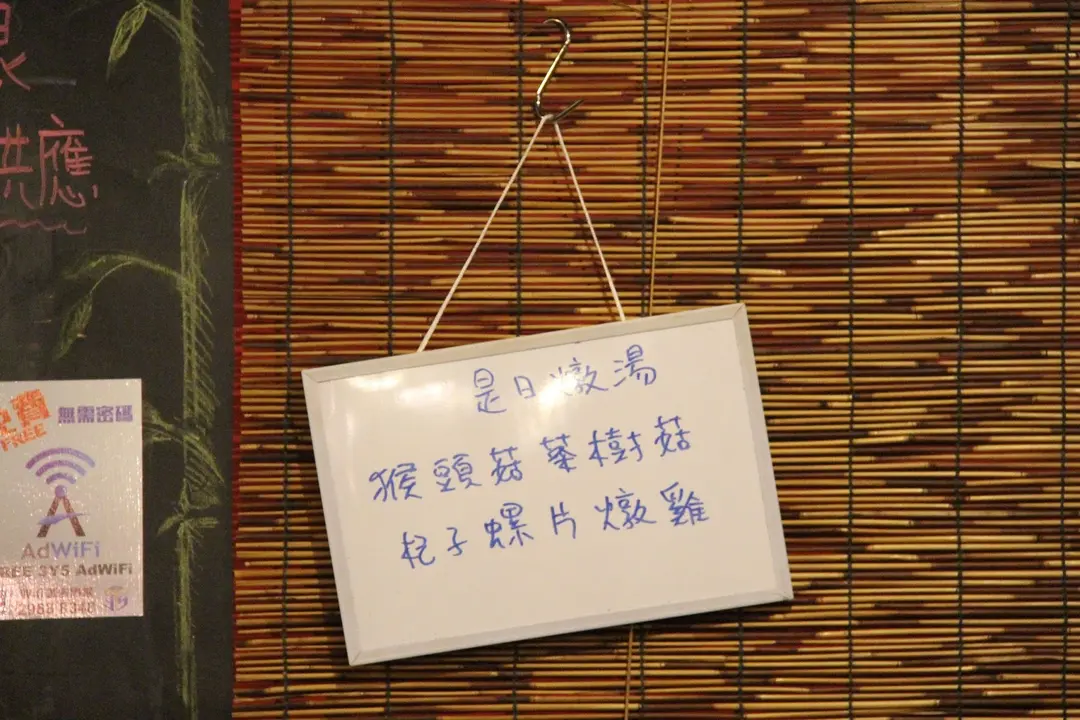 供應
免費
FREE
無需密碼
AdWiFi
FREE 3Y5 AdWiFi
2983 8340
是日燉湯
猴頭菇茶樹菇
杞子螺片燉雞